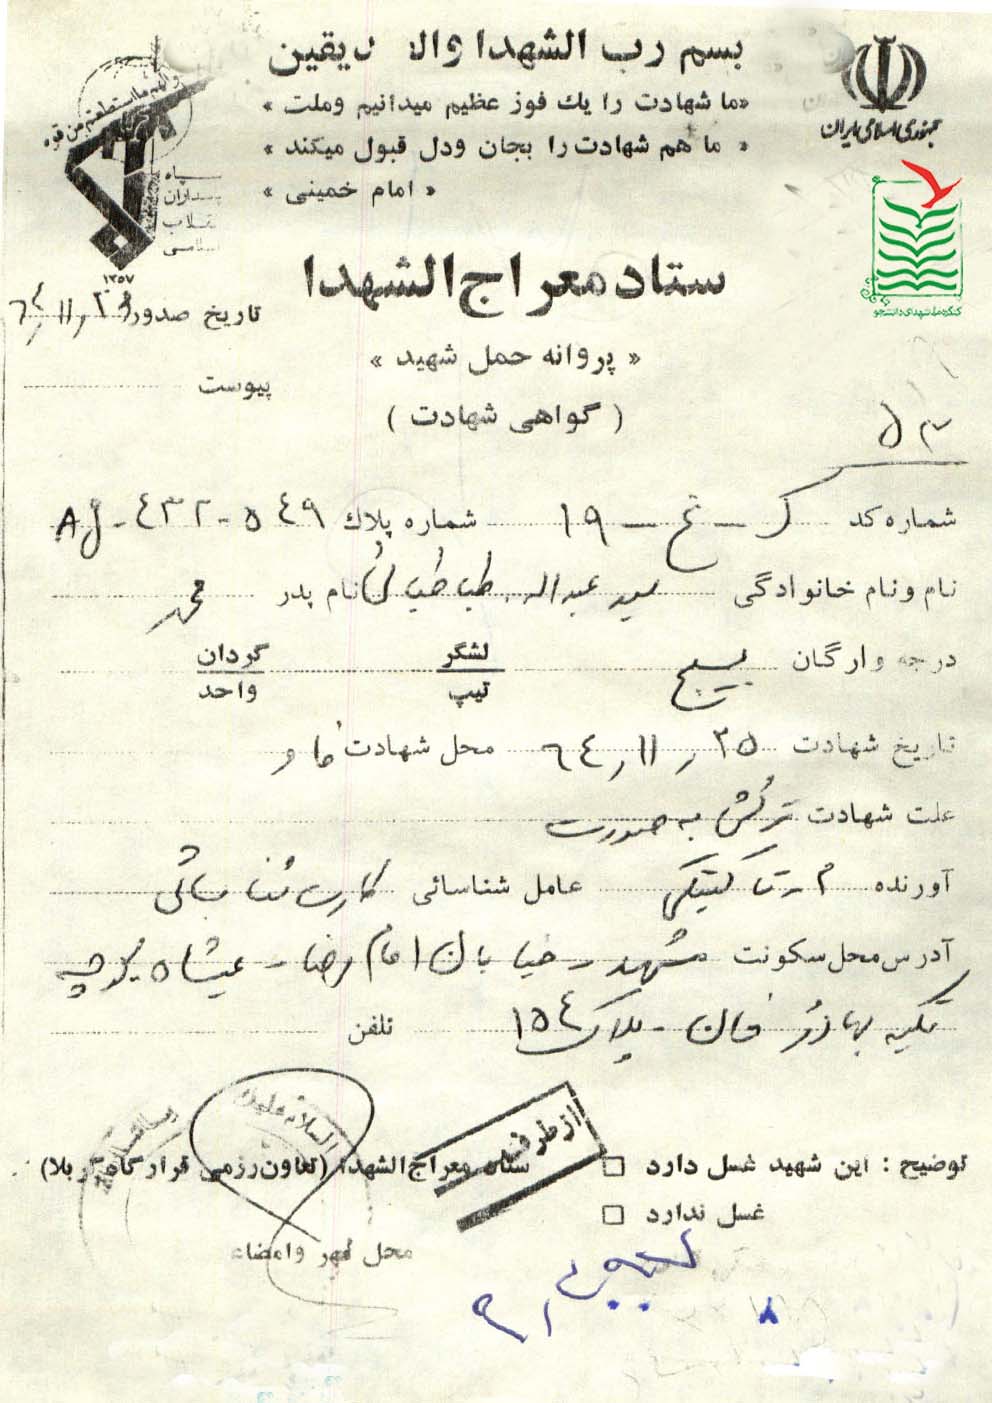 بسم رب الشهدا وال دیقین
«ما شهادت را یك فوز عظیم میدانیم وملت »
« ما هم شهادت را بجان ودل قبول میکند »
« امام خمینی »
جمهوری اسلامی ایران
واعدوا لهم ما استطعتم من قوه
سپاه
پاسداران
انقلاب
اسلامی
۱۳۵۷
کنگره ملی شهدای دانشجو
ستاد معراج الشهدا
تاریخ صدور ۶٤٫۱۱٫۲۹
« پروانه حمل شهید »
پیوست
( گواهی شهادت )
۵۳
شماره کد ک - خ - ۱۹ شماره پلاك AJ-٤۳۲-۵٤۹
نام و نام خانوادگی سید عبداله طباطبائی نام پدر محمد
درجه و ارگان بسیج لشگر تیپ گردان واحد
تاریخ شهادت ۲۵٫۱۱٫۶٤ محل شهادت فاو
علت شهادت ترکش به صورت
آورنده م - تاکتیکی عامل شناسائی کارت شناسائی
آدرس محل سکونت مشهد - خیابان امام رضا - عیدگاه کوچه
تکیه بهادر خان - پلاک ۱۵٤ تلفن
از طرف
توضیح : این شهید غسل دارد □ ستاد معراج الشهدا (تعاون رزمی قرارگاه کربلا)
غسل ندارد □
محل مهر وامضاء